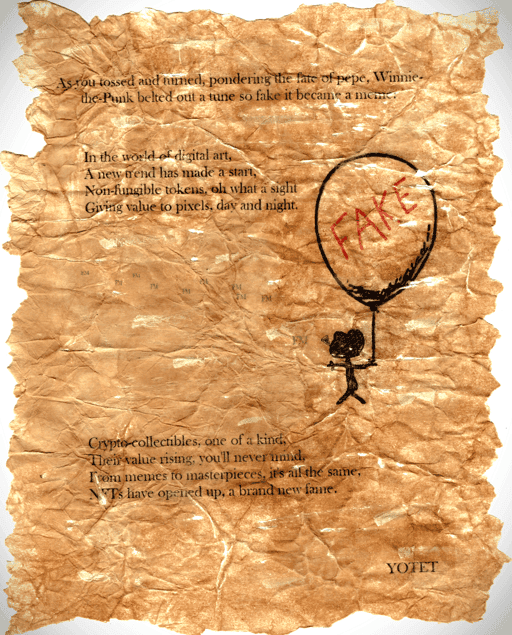 As you tossed and turned, pondering the fate of pepe, Winnie-
the-Punk belted out a tune so fake it became a meme.
In the world of digital art,
A new trend has made a start,
Non-fungible tokens, oh what a sight
Giving value to pixels, day and night.
FAKE
Crypto-collectibles, one of a kind,
Their value rising, you'll never mind,
From memes to masterpieces, it's all the same,
NFTs have opened up, a brand new fame.
YOTET